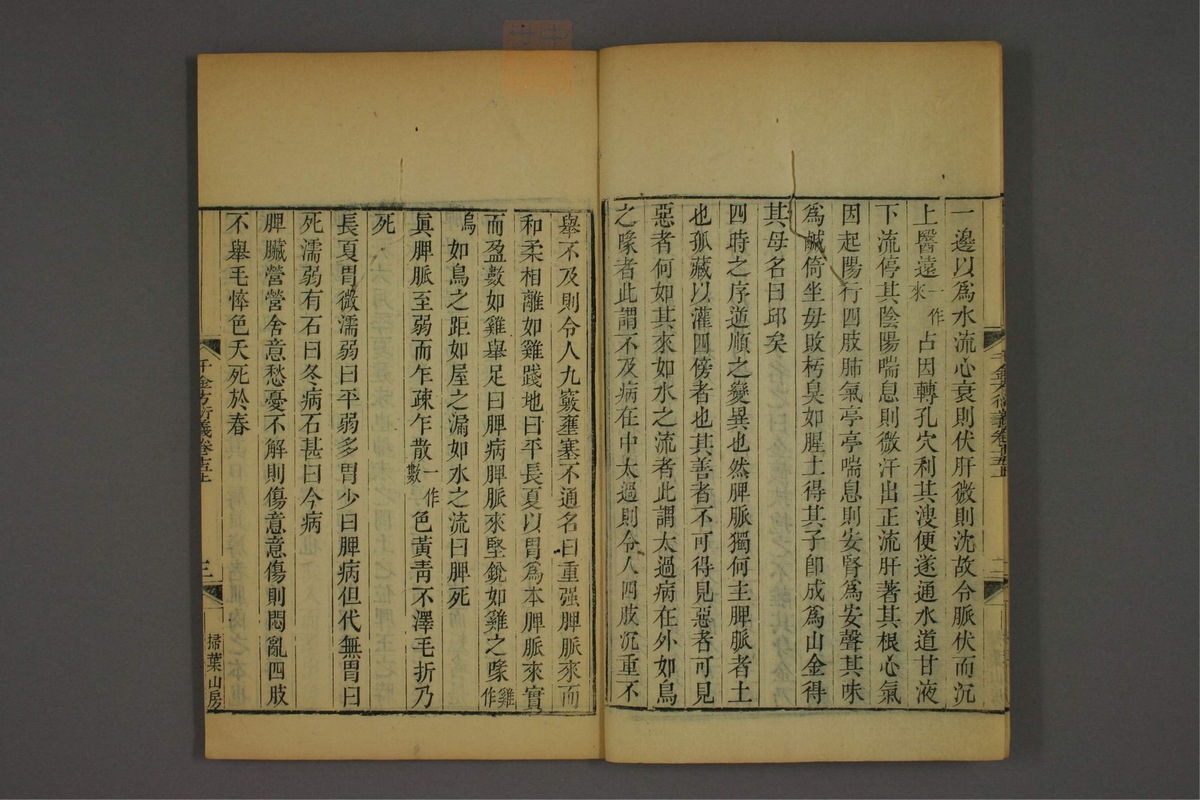 一邊以為水流心衰則伏肝微則沈故令脈伏而沉
上醫遠一作來占因轉孔穴利其溲便遂通水道甘液
下流停其陰陽喘息則微汗出正流肝著其根心氣
因起陽行四肢肺氣亭亭喘息則安腎為安聲其味
為鹹倚坐毋敗朽臭如腥土得其子卽成為山金得
其母名曰邱矣
四時之序逆順之變異也然脾脈獨何主脾脈者土
也孤藏以灌四傍者也其善者不可得見惡者可見
惡者何如其來如水之流者此謂太過病在外如鳥
之喙者此謂不及病在中太過則令人四肢沉重不
舉不及則令人九竅壅塞不通名曰重强脾脈來而
和柔相離如雞踐地曰平長夏以胃為本脾脈來實
而盈數如雞舉足曰脾病脾脈來堅銳如雞之喙雞作
烏如鳥之距如屋之漏如水之流曰脾死
眞脾脈至弱而乍疎乍散一作數色黃靑不澤毛折乃
死
長夏胃微濡弱曰平弱多胃少曰脾病但代無胃曰
死濡弱有石曰冬病石甚曰今病
脾臟營營舍意愁憂不解則傷意意傷則悶亂四肢
不舉毛悴色夭死於春
千金方衍義卷十五上
三
掃葉山房